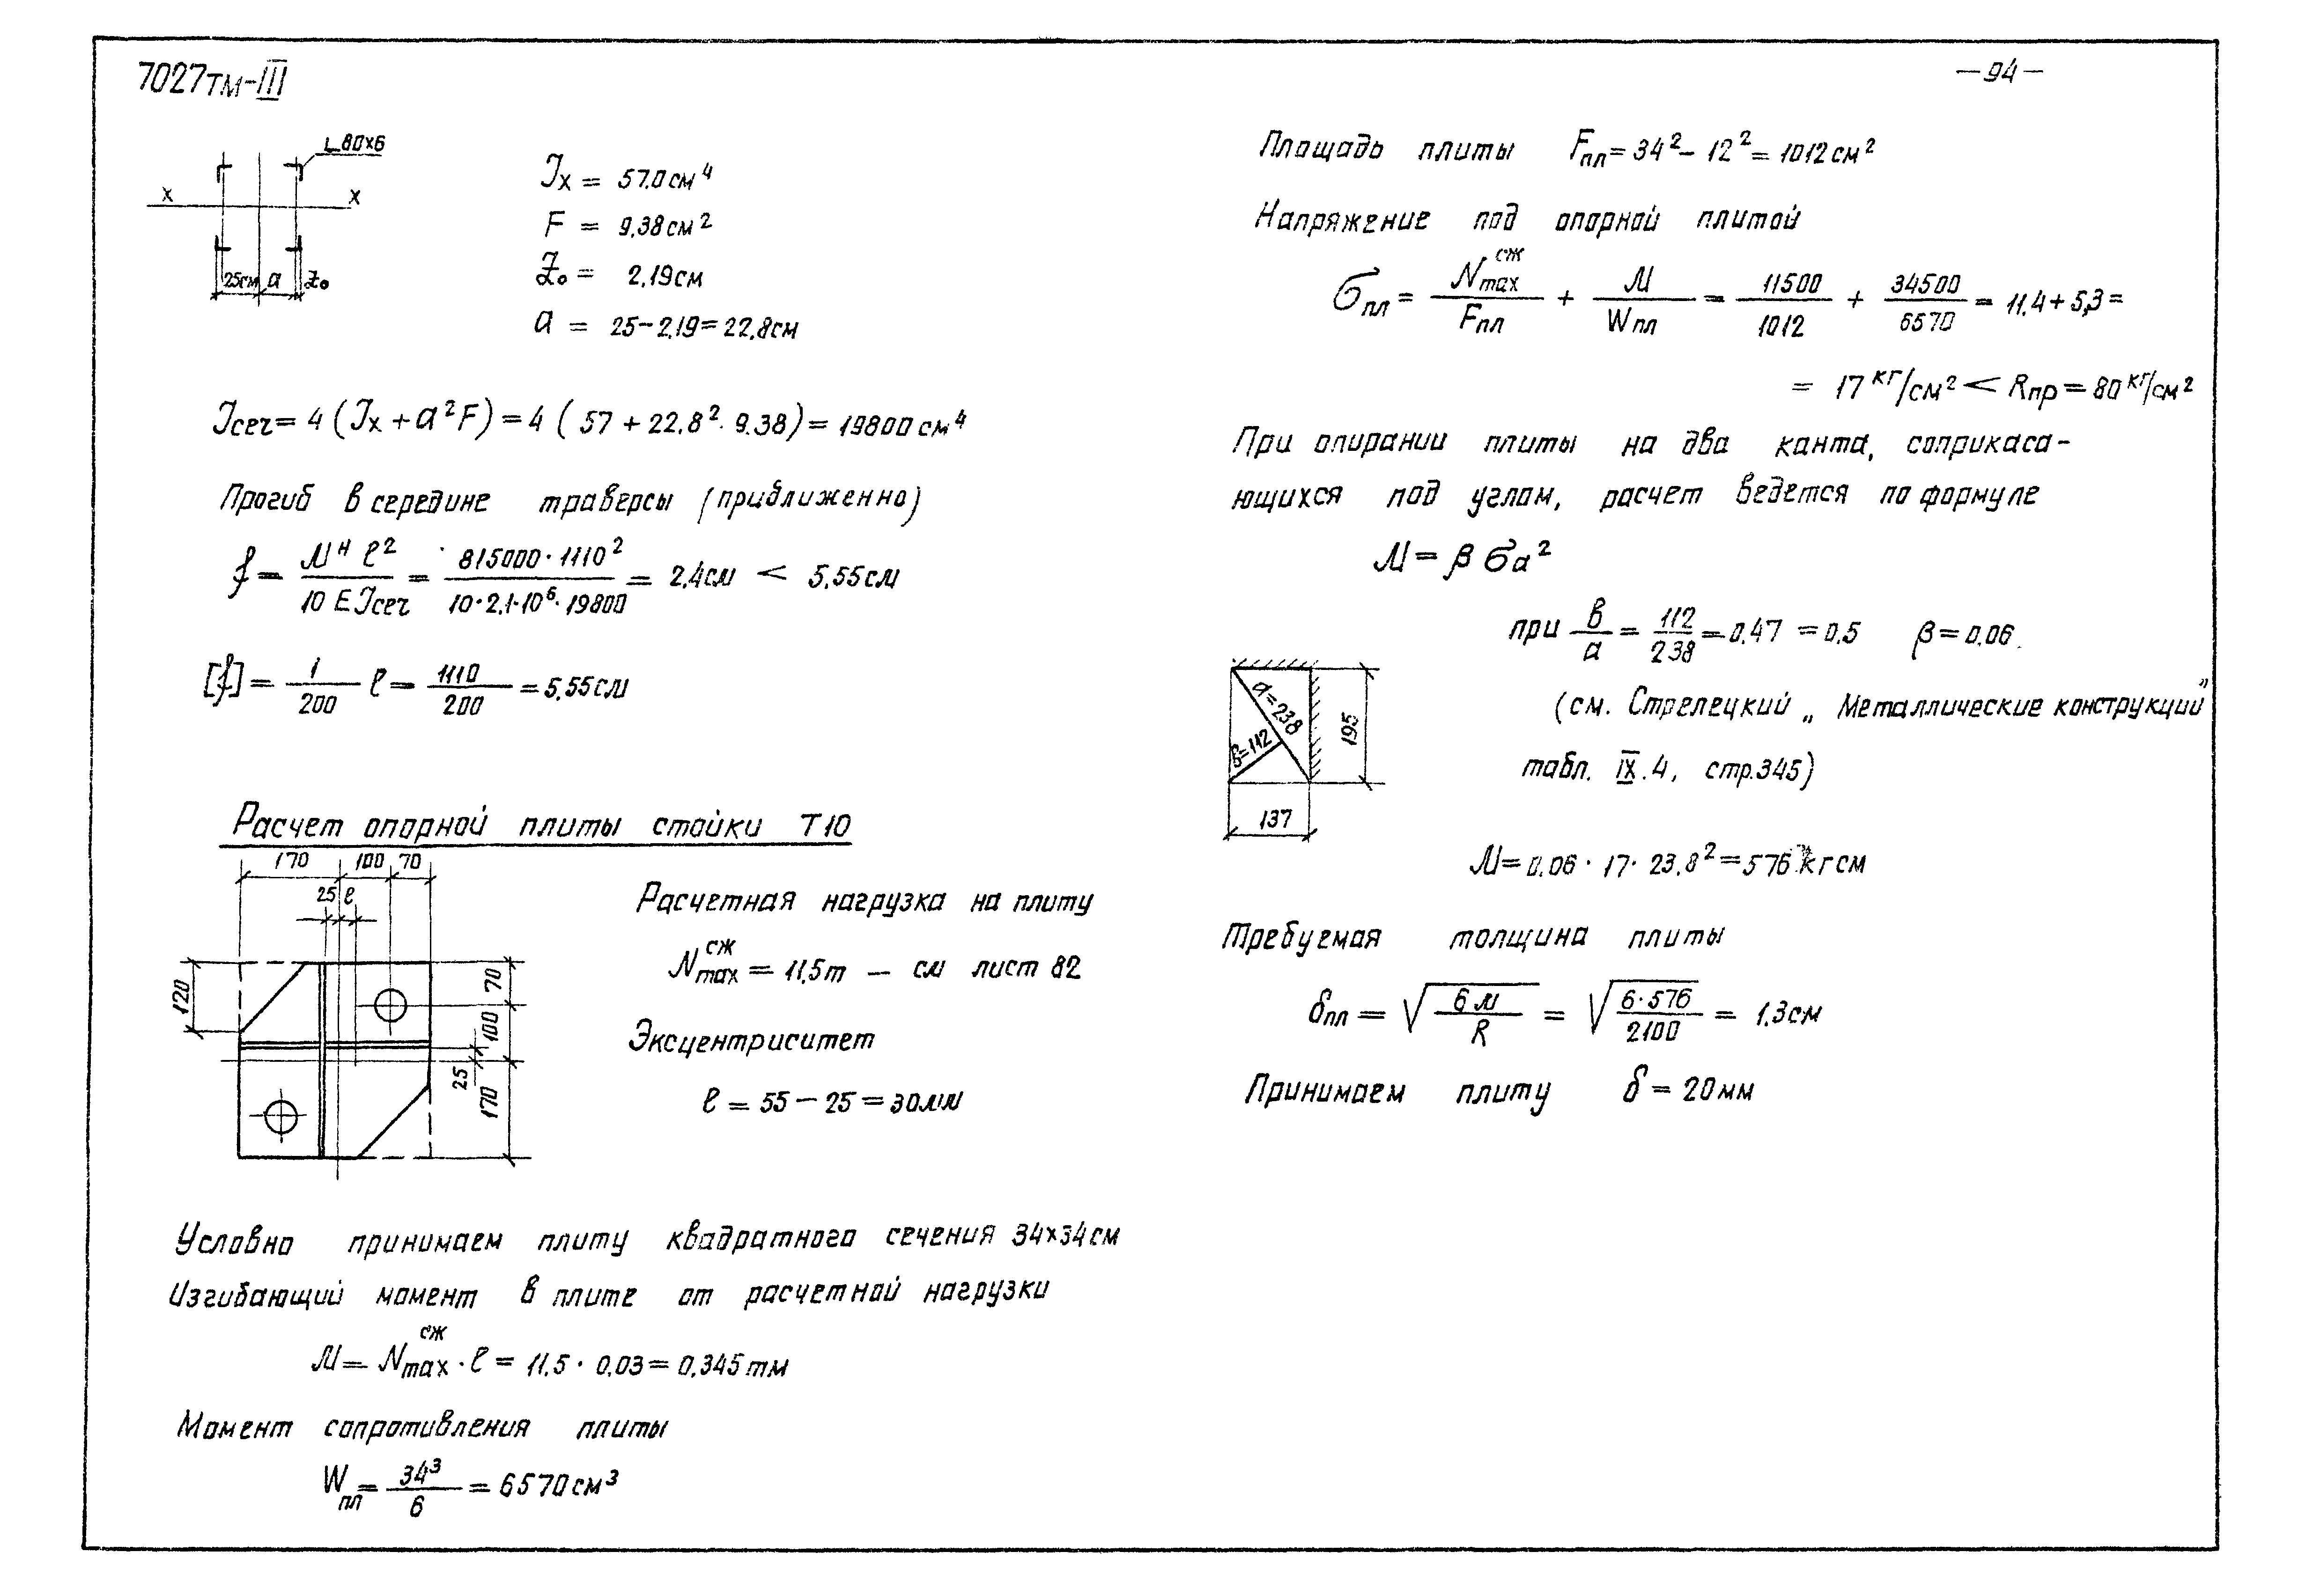 7027тм-III
-94-
∟80×6
x x
25см a z₀
Jx = 57.0 см⁴
F = 9.38 см²
z₀ = 2.19 см
a = 25 - 2.19 = 22.8 см
Jсеч = 4 (Jx + a²F) = 4 (57 + 22.8² · 9.38) = 19800 см⁴
Прогиб в середине траверсы (приближенно)
f = Mᴴ l² / 10 E Jсеч = 815000 · 1110² / 10 · 2.1 · 10⁶ · 19800 = 2.4 см < 5.55 см
[f] = 1/200 l = 1110/200 = 5.55 см
Расчет опорной плиты стойки Т10
170 100 70
25 e
120
70
100
25
170
Расчетная нагрузка на плиту
N сж max = 11.5 т — см лист 82
Эксцентриситет
e = 55 - 25 = 30 мм
Условно принимаем плиту квадратного сечения 34×34 см
Изгибающий момент в плите от расчетной нагрузки
M = N сж max · e = 11.5 · 0.03 = 0.345 тм
Момент сопротивления плиты
Wпл = 34³/6 = 6570 см³
Площадь плиты Fпл = 34² - 12² = 1012 см²
Напряжение под опорной плитой
σпл = N сж max / Fпл + M / Wпл = 11500/1012 + 34500/6570 = 11.4 + 5,3 =
= 17 кг/см² < Rпр = 80 кг/см²
При опирании плиты на два канта, соприкаса-
ющихся под углом, расчет ведется по формуле
M = β σ a²
при в/a = 112/238 = 0.47 = 0.5 β = 0.06.
(см. Стрелецкий „Металлические конструкции"
табл. IX.4, стр.345)
a=238
в=112
195
137
M = 0.06 · 17 · 23.8² = 576 кгсм
Требуемая толщина плиты
δпл = √(6M/R) = √(6·576/2100) = 1.3 см
Принимаем плиту δ = 20 мм